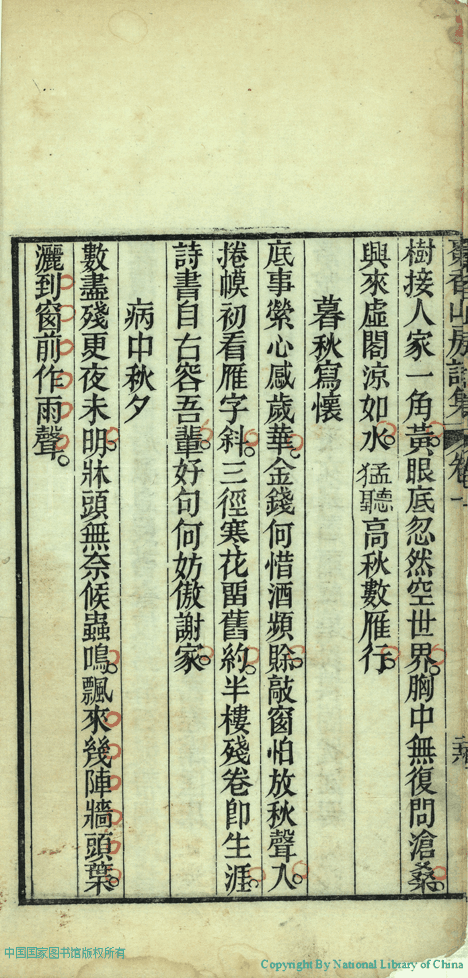 樹接人家一角黃眼底忽然空世界胸中無復問滄桑
興來虛閣涼如水猛聽高秋數雁行
暮秋寫懷
底事縈心感歲華金錢何惜酒頻賒敲窗怕放秋聲入
捲幙初看雁字斜三徑寒花畱舊約半樓殘卷卽生涯
詩書自古容吾輩好句何妨傲謝家
病中秋夕
數盡殘更夜未明牀頭無奈候蟲鳴飄來幾陣牆頭葉
灑到窗前作雨聲
中国国家图书馆版权所有
Copyright By National Library of China